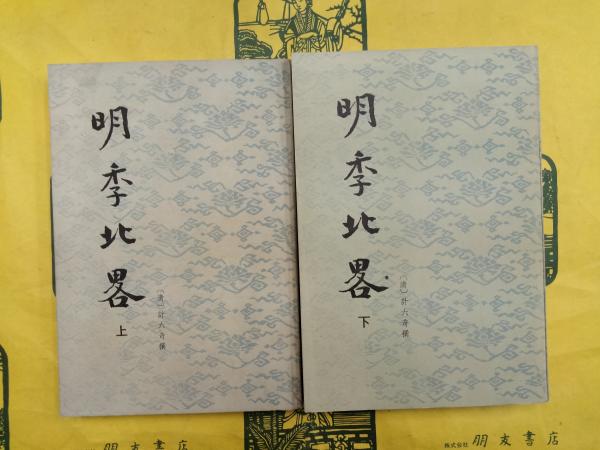 明季北畧
上
〔清〕計六奇撰
明季北畧
下
〔清〕計六奇撰
朋友書店
株式会社 朋友書店